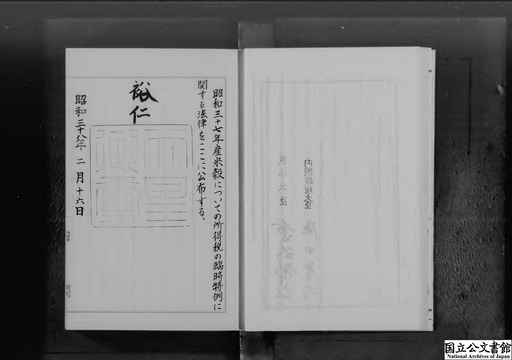 昭和三十七年産米穀についての所得税の臨時特例に
関する法律をここに公布する。
裕仁
昭和三十八年二月十六日
内閣総理大臣
国立公文書館
National Archives of Japan